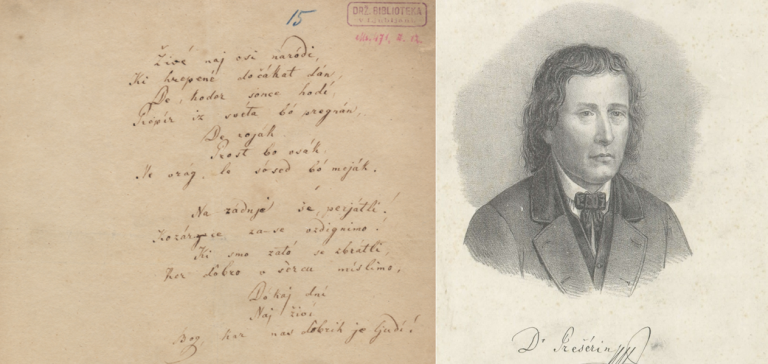 15
DRŽ. BIBLIOTEKA
V LJUBLJANI
Živé naj vsi naródi,
Ki hrepené dočakat dán,
De, koder sonce hodi,
Prepir iz svéta bó pregnán,
De roják
Prost bo vsák,
Ne vrag, le sósed bó meják.
Na zadnje še, perjatli!
Kozárce za-se vzdignimo!
Ki smo zató se zbratli,
Ker dobro v sercu mislimo,
Dókaj dni
Naj živí
Bog, kar nas dobrih je ljudi!
Dr Prešérin